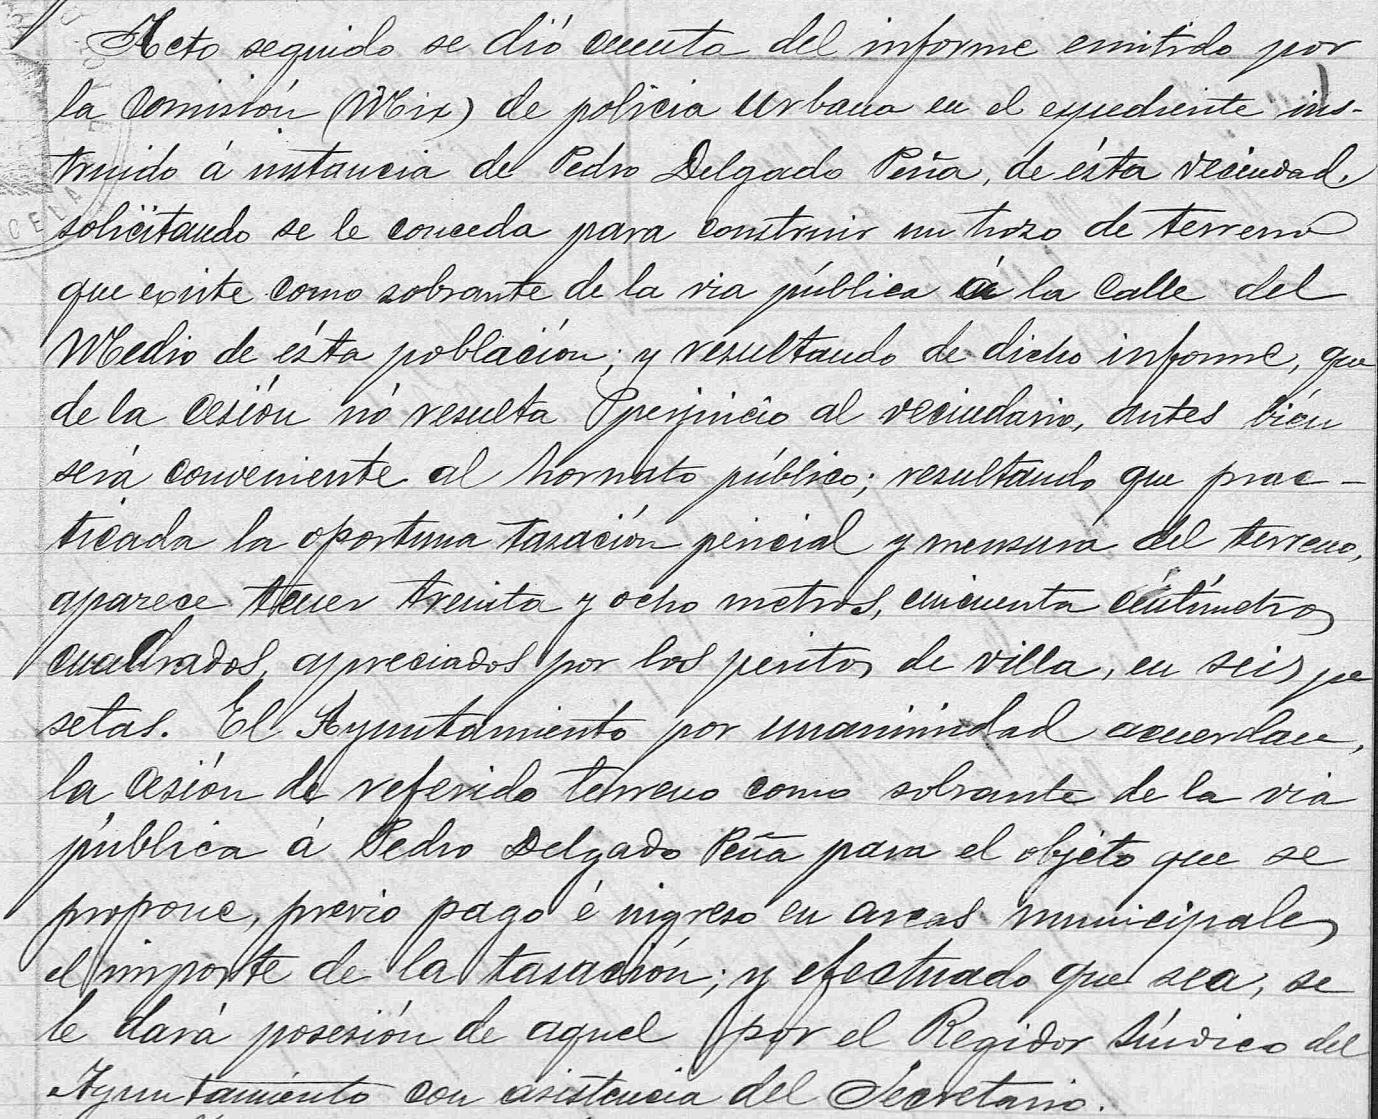 Acto seguido se dió cuenta del informe emitido por
la Comisión (Mix) de policia Urbana en el expediente ins-
truido á instancia de Pedro Delgado Peña, de ésta vecindad
solicitando se le conceda para construir un trozo de terreno
que existe como sobrante de la via pública á la Calle del
Medio de ésta población; y resultando de dicho informe, que
de la cesión nó resulta perjuicio al vecindario, antes bién
será conveniente al hornato público; resultando que prac-
ticada la oportuna tasación pericial y mensura del terreno,
aparece tener treinta y ocho metros, cincuenta céntimetros
cuadrados, apreciados por los peritos de villa, en seis pe
setas. El Ayuntamiento por unanimidad acuerdan,
la cesión de referido terreno como sobrante de la via
pública á Pedro Delgado Peña para el objéto que se
propone, previo pago é ingreso en arcas municipales
el importe de la tasación; y efectuado que sea, se
le dará posesión de aquel por el Regidor Síndico del
Ayuntamiento con asistencia del Secretario.